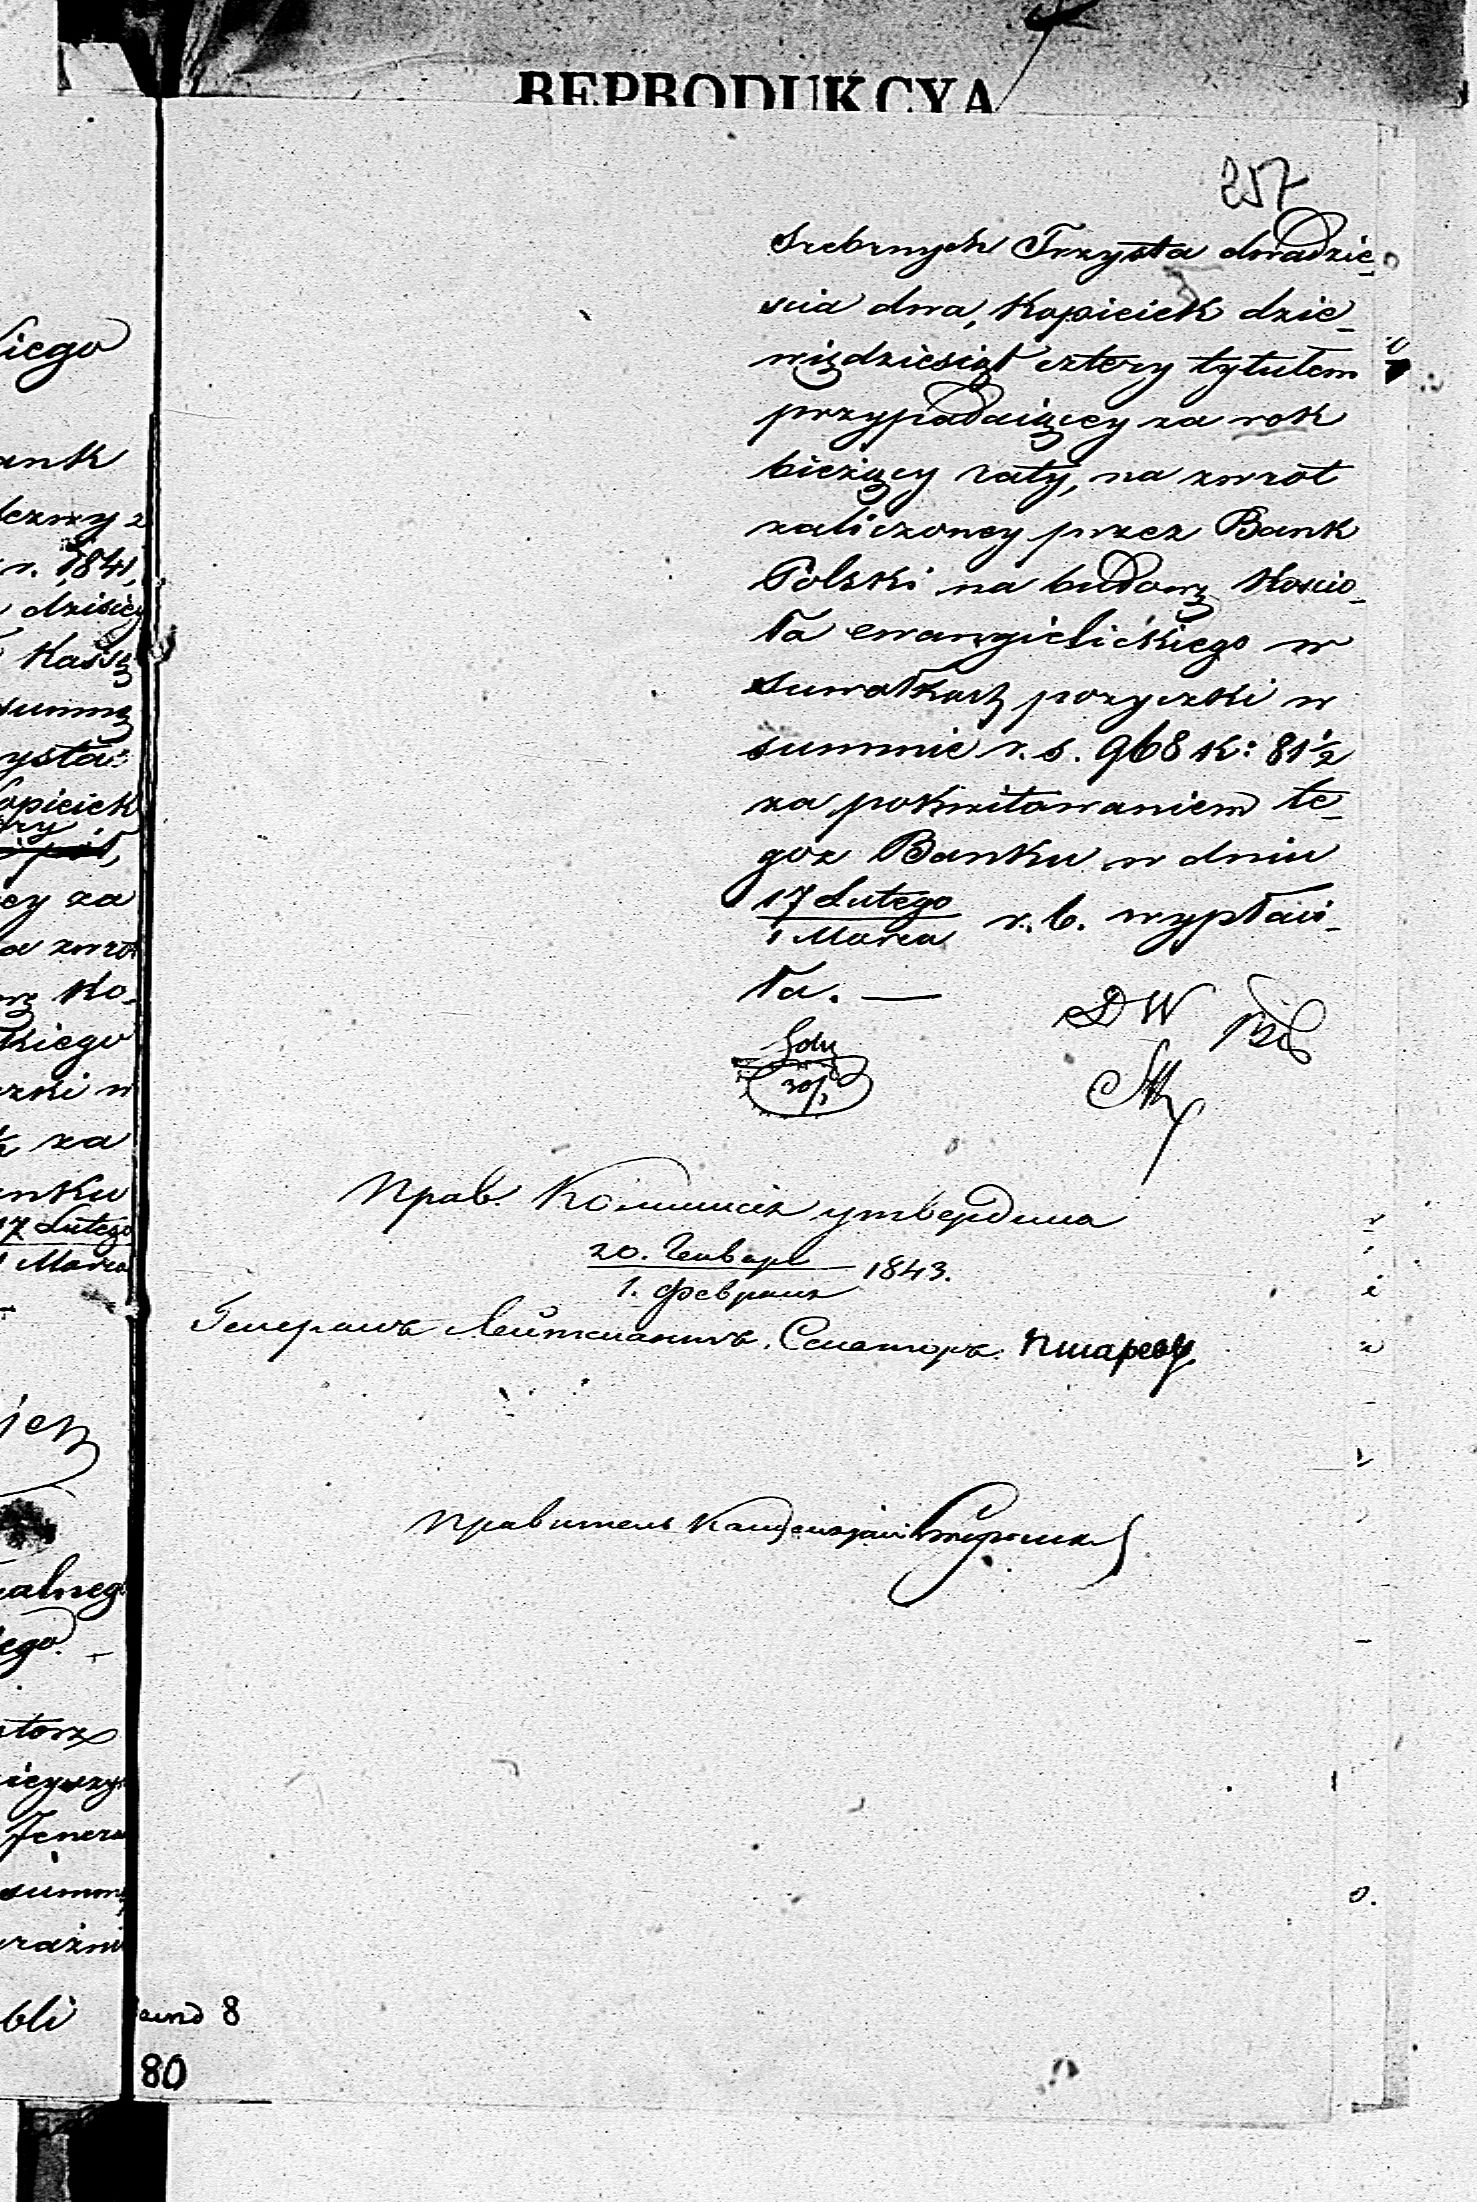 REPRODUKCYA
257
Srebrnych Trzysta dwadzie-
scia dwa, Kopieiek dzie-
więdziesiąt cztery tytułem
przypadaiącey za rok
bieżący raty, na zwrot
zaliczoney przez Bank
Polski na budowę Kościo-
ła ewangielickiego w
Suwałkach pożyczki w
summie r. s. 968 k: 81 ½
za pokwitowaniem te-
goż Banku w dniu
17 Lutego
1 Marca r. b. wypłaci-
ła. —
DW
Прав. Коммисія утвердила
20. Генваря
1. Февраля 1843.
Генералъ Лейтенантъ, Сенаторъ
Правитель Канцеляріи
iego
ank
r. 1841,
dzisiey
Kassę
summę
ysta:
opieiek
ey za
a zwrot
Ko-
kiego
zki w
½ za
anku
17 Lutego
1 Marca
alneg
iego.
Jenera
summ
bli
8
80